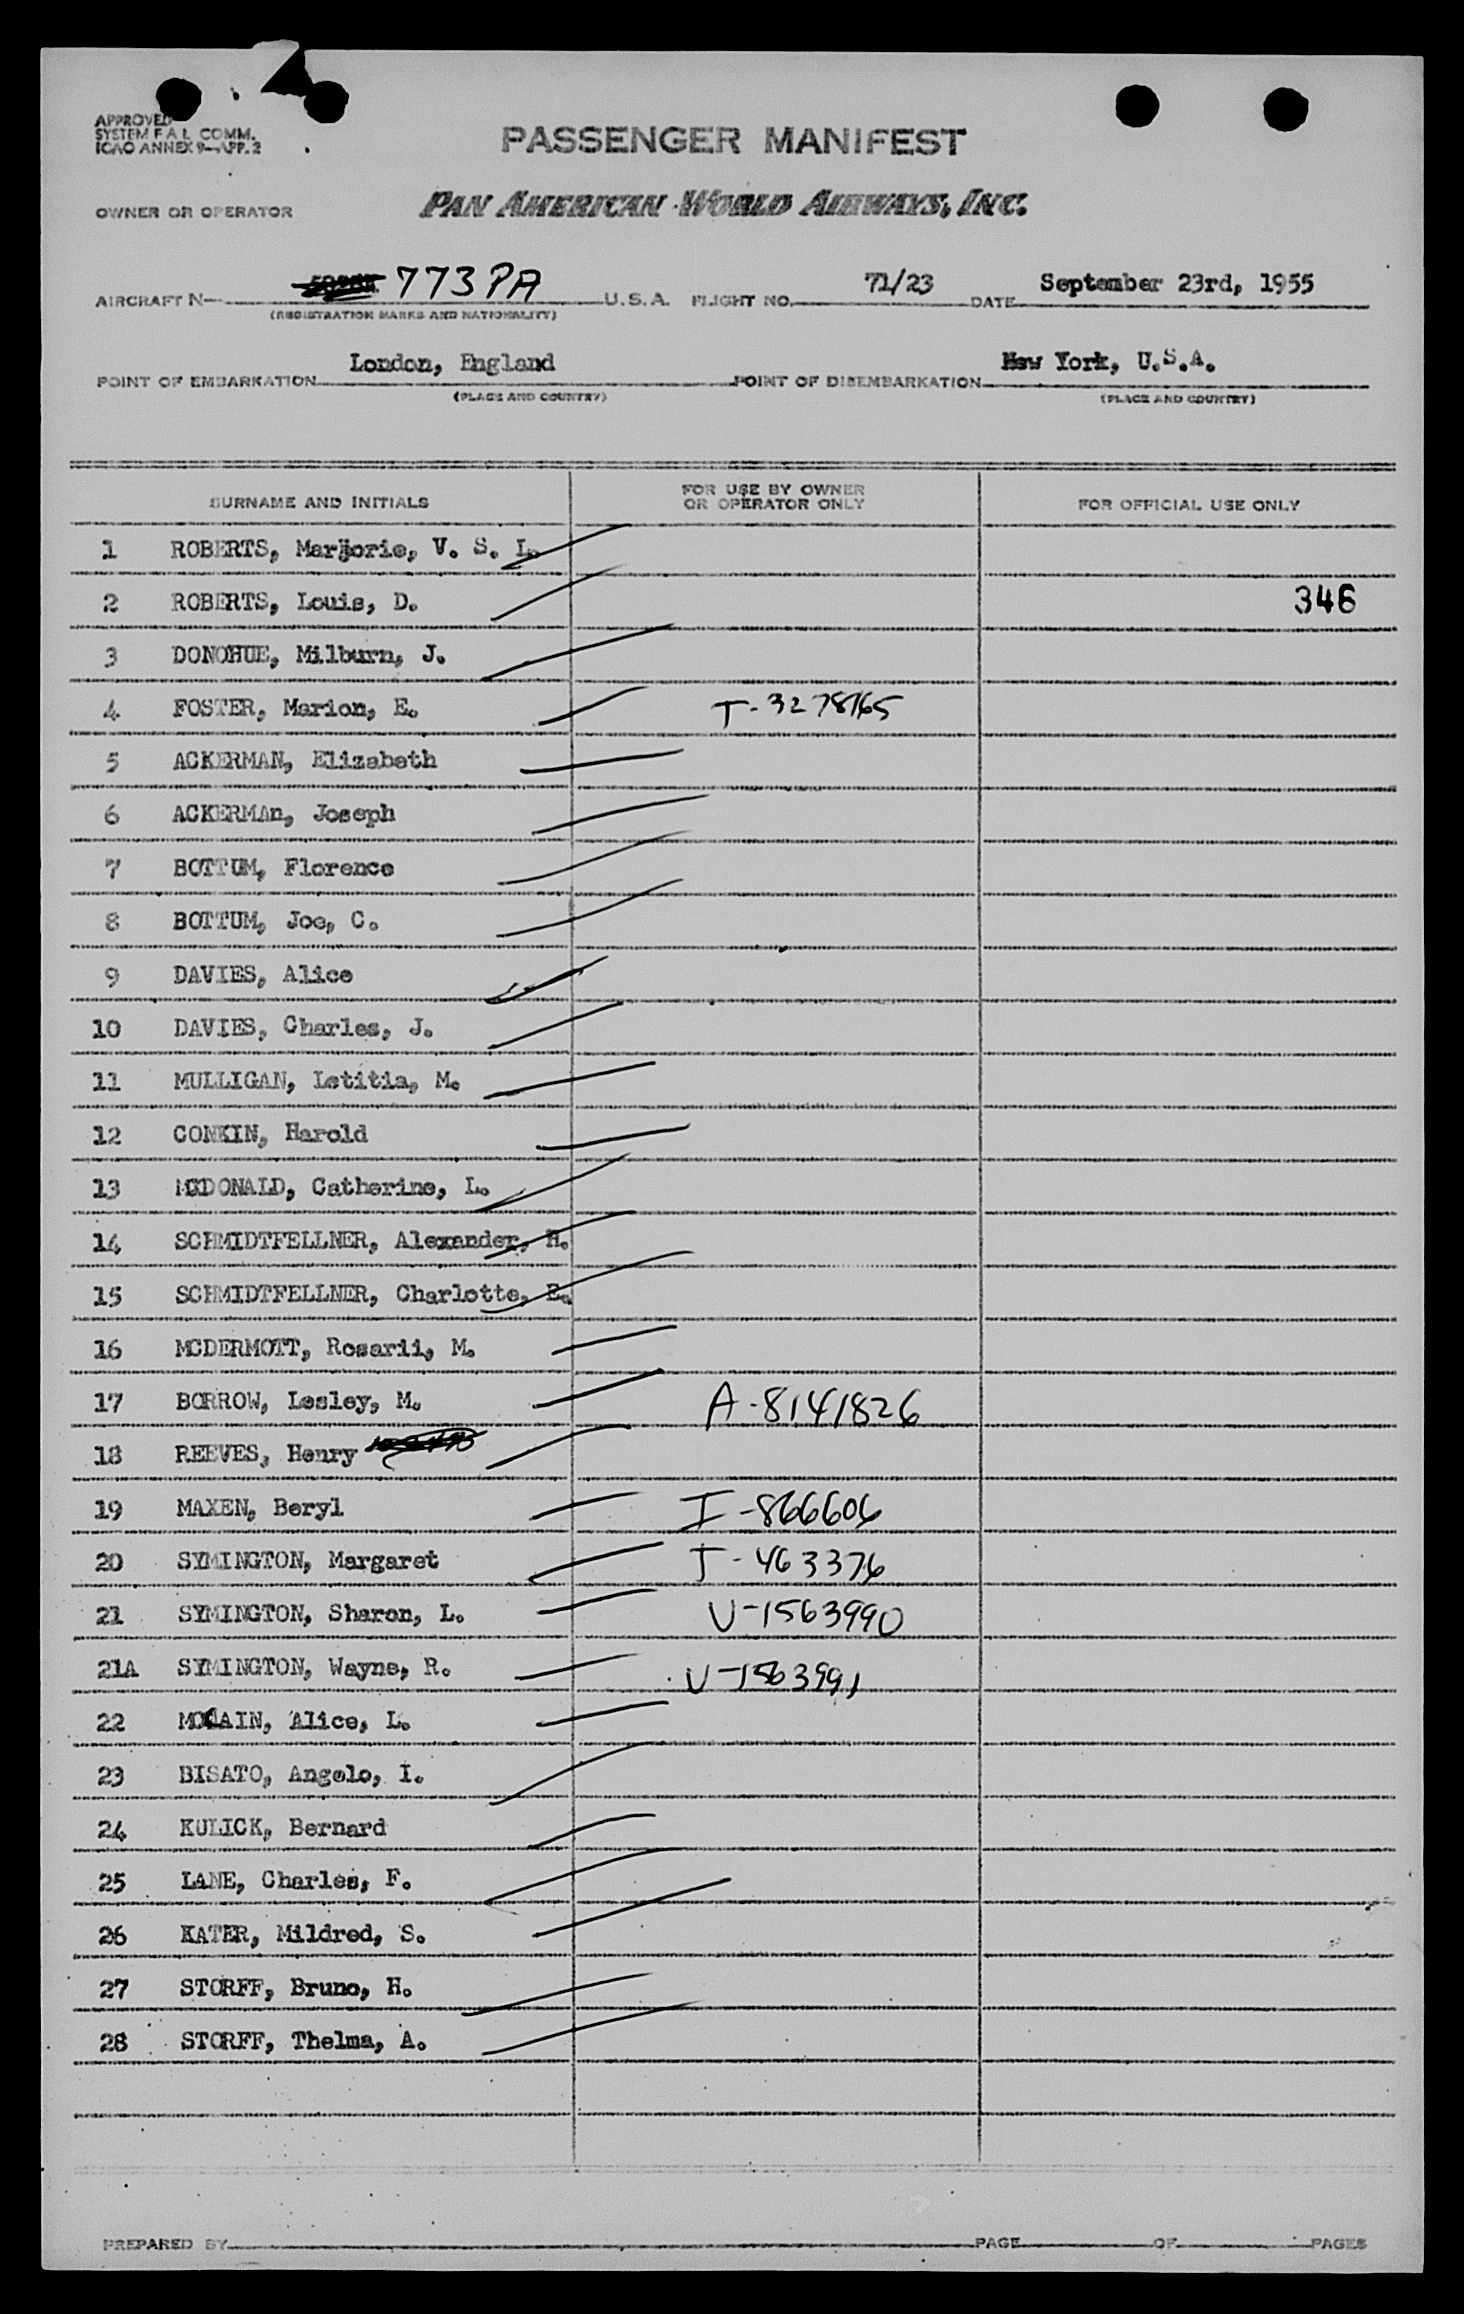 APPROVED
SYSTEM F.A.L. COMM.
ICAO ANNEX 9-APP. 2
PASSENGER MANIFEST
OWNER OR OPERATOR PAN AMERICAN WORLD AIRWAYS, INC.
AIRCRAFT N- 773PA U.S.A. FLIGHT NO. 71/23 DATE September 23rd, 1955
(REGISTRATION MARKS AND NATIONALITY)
POINT OF EMBARKATION London, England POINT OF DISEMBARKATION New York, U.S.A.
(PLACE AND COUNTRY) (PLACE AND COUNTRY)
SURNAME AND INITIALS FOR USE BY OWNER OR OPERATOR ONLY FOR OFFICIAL USE ONLY
1 ROBERTS, Marjorie, V. S. L.
2 ROBERTS, Louis, D. 346
3 DONOHUE, Milburn, J.
4 FOSTER, Marion, E. T-3278765
5 ACKERMAN, Elizabeth
6 ACKERMAn, Joseph
7 BOTTUM, Florence
8 BOTTUM, Joe, C.
9 DAVIES, Alice
10 DAVIES, Charles, J.
11 MULLIGAN, Letitia, M.
12 CONKIN, Harold
13 MCDONALD, Catherine, L.
14 SCHMIDTFELLNER, Alexander, H.
15 SCHMIDTFELLNER, Charlotte, E.
16 MCDERMOTT, Rosarii, M.
17 BORROW, Lesley, M. A-8141826
18 REEVES, Henry
19 MAXEN, Beryl I-866606
20 SYMINGTON, Margaret T-463376
21 SYMINGTON, Sharon, L. V-1563990
21A SYMINGTON, Wayne, R. V-1563991
22 MCCAIN, Alice, L.
23 BISATO, Angelo, I.
24 KULICK, Bernard
25 LANE, Charles, F.
26 KATER, Mildred, S.
27 STORFF, Bruno, H.
28 STORFF, Thelma, A.
PREPARED BY PAGE OF PAGES